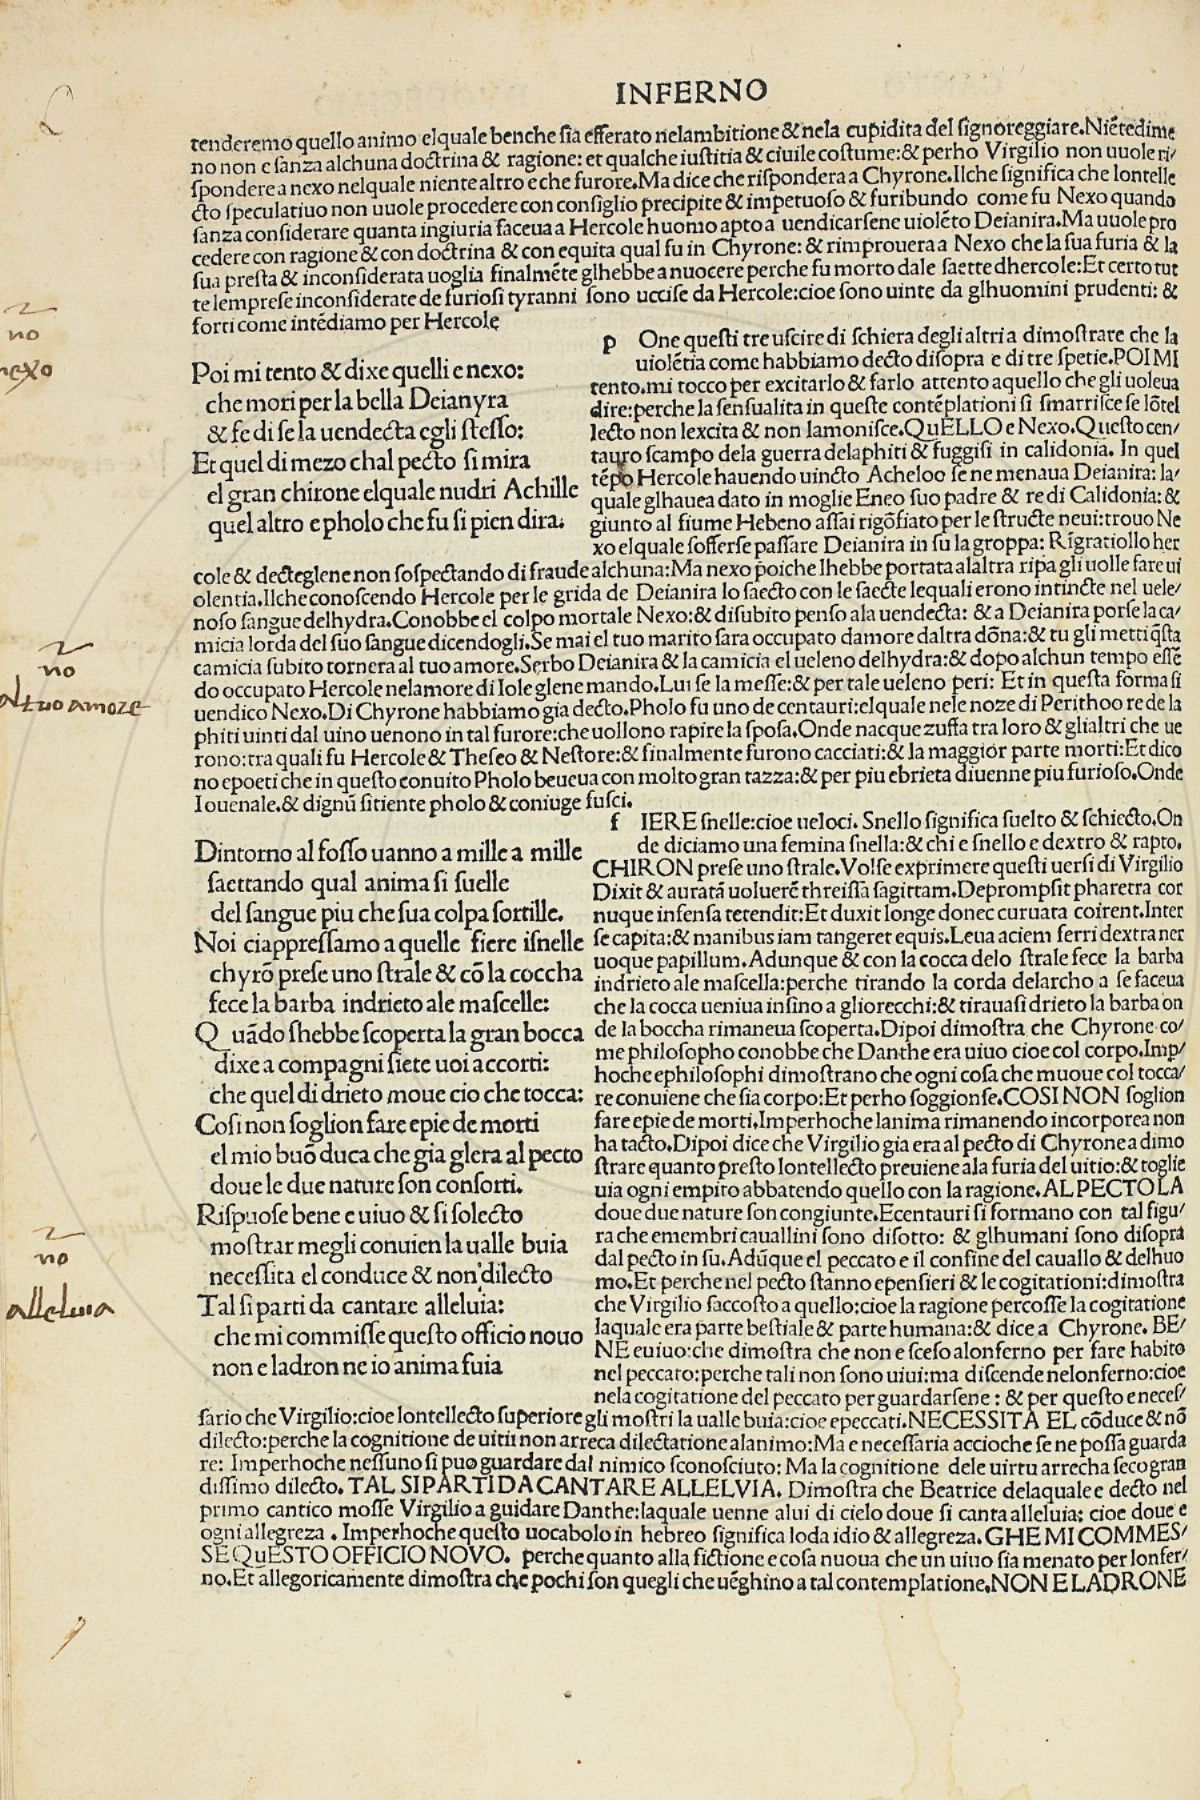 INFERNO
tenderemo quello animo elquale benche sia efferato nelambitione & nela cupidita del signoreggiare.Niẽtedime
no non e sanza alchuna doctrina & ragione: et qualche iustitia & ciuile costume:& perho Virgilio non uuole ri/
spondere a nexo nelquale niente altro e che furore.Ma dice che rispondera a Chyrone.Ilche significa che lontelle
cto speculatiuo non uuole procedere con consiglio precipite & impetuoso & furibundo come fu Nexo quando
sanza considerare quanta ingiuria faceua a Hercole huomo apto a uendicarsene uiolẽto Deianira.Ma uuole pro
cedere con ragione & con doctrina & con equita qual fu in Chyrone: & rimprouera a Nexo che la sua furia & la
sua presta & inconsiderata uoglia finalmẽte glhebbe a nuocere perche fu morto dale saette dhercole:Et certo tut
te lemprese inconsiderate de furiosi tyranni sono uccise da Hercole:cioe sono uinte da glhuomini prudenti: &
forti come intẽdiamo per Hercole
no
nexo
Poi mi tento & dixe quelli e nexo:
che mori per la bella Deianyra
& fe di se la uendecta egli stesso:
Et quel di mezo chal pecto si mira
el gran chirone elquale nudri Achille
quel altro e pholo che fu si pien dira.
p One questi tre uscire di schiera degli altri a dimostrare che la
uiolẽtia come habbiamo decto disopra e di tre spetie.POI MI
tento.mi tocco per excitarlo & farlo attento aquello che gli uoleua
dire:perche la sensualita in queste contẽplationi si smarrisce se lõtel
lecto non lexcita & non lamonisce.QuELLO e Nexo.Questo cen/
tauro scampo dela guerra delaphiti & fuggisi in calidonia. In quel
tẽpo Hercole hauendo uincto Acheloo se ne menaua Deianira: la/
quale glhauea dato in moglie Eneo suo padre & re di Calidonia:&
giunto al fiume Hebeno assai rigõfiato per le structe neui:trouo Ne
xo elquale sofferse passare Deianira in su la groppa: Rĩgratiollo her
cole & decteglene non sospectando di fraude alchuna:Ma nexo poiche lhebbe portata alaltra ripa gli uolle fare ui
olentia.Ilche conoscendo Hercole per le grida de Deianira lo saecto con le saecte lequali erono intincte nel uele/
noso sangue delhydra.Conobbe el colpo mortale Nexo:& disubito penso ala uendecta: & a Deianira porse la ca/
micia lorda del suo sangue dicendogli.Se mai el tuo marito sara occupato damore daltra dõna:& tu gli metti q̃sta
camicia subito tornera al tuo amore.Serbo Deianira & la camicia el ueleno delhydra:& dopo alchun tempo essẽ
do occupato Hercole nelamore di Iole glene mando.Lui se la messe:& per tale ueleno peri: Et in questa forma si
uendico Nexo.Di Chyrone habbiamo gia decto.Pholo fu uno de centauri:elquale nele noze di Perithoo re de la
phiti uinti dal uino uenono in tal furore:che uollono rapire la sposa.Onde nacque zuffa tra loro & glialtri che ue
rono:tra quali fu Hercole & Theseo & Nestore:& finalmente furono cacciati:& la maggior parte morti:Et dico
no epoeti che in questo conuito Pholo beueua con molto gran tazza:& per piu ebrieta diuenne piu furioso.Onde
Iouenale.& dignũ sitiente pholo & coniuge fusci.
no
al tuo amore
Dintorno al fosso uanno a mille a mille
saettando qual anima si suelle
del sangue piu che sua colpa sortille.
Noi ciappressamo a quelle fiere isnelle
chyrõ prese uno strale & cõ la coccha
fece la barba indrieto ale mascelle:
Quãdo shebbe scoperta la gran bocca
dixe a compagni siete uoi accorti:
che quel di drieto moue cio che tocca:
Cosi non soglion fare epie de morti
el mio buõ duca che gia glera al pecto
doue le due nature son consorti.
Rispuose bene e uiuo & si solecto
mostrar megli conuien la ualle buia
necessita el conduce & non dilecto
Tal si parti da cantare alleluia:
che mi commisse questo officio nouo
non e ladron ne io anima fuia
no
alleluia
f IERE snelle:cioe ueloci. Snello significa suelto & schiecto.On
de diciamo una femina snella:& chi e snello e dextro & rapto.
CHIRON prese uno strale.Volse exprimere questi uersi di Virgilio
Dixit & auratã uoluerẽ threissa sagittam.Deprompsit pharetra cor
nuque infensa tetendit:Et duxit longe donec curuata coirent.Inter
se capita:& manibus iam tangeret equis.Leua aciem ferri dextra ner
uoque papillum.Adunque & con la cocca delo strale fece la barba
indrieto ale mascella:perche tirando la corda delarcho a se faceua
che la cocca ueniua insino a gliorecchi:& tirauasi drieto la barba on
de la boccha rimaneua scoperta.Dipoi dimostra che Chyrone co/
me philosopho conobbe che Danthe era uiuo cioe col corpo.Imp/
hoche ephilosophi dimostrano che ogni cosa che muoue col tocca/
re conuiene che sia corpo:Et perho soggionse.COSI NON soglion
fare epie de morti.Imperhoche lanima rimanendo incorporea non
ha tacto.Dipoi dice che Virgilio gia era al pecto di Chyrone a dimo
strare quanto presto lontellecto preuiene ala furia del uitio:& toglie
uia ogni empito abbatendo quello con la ragione.AL PECTO LA
doue due nature son congiunte.Ecentauri si formano con tal figu/
ra che emembri cauallini sono disotto: & glhumani sono disopra
dal pecto in su.Adũque el peccato e il confine del cauallo & delhuo
mo.Et perche nel pecto stanno epensieri & le cogitationi:dimostra
che Virgilio saccosto a quello:cioe la ragione percosse la cogitatione
laquale era parte bestiale & parte humana:& dice a Chyrone. BE/
NE euiuo:che dimostra che non e sceso alonferno per fare habito
nel peccato:perche tali non sono uiui:ma discende nelonferno:cioe
nela cogitatione del peccato per guardarsene : & per questo e neces/
sario che Virgilio:cioe lontellecto superiore gli mostri la ualle buia:cioe epeccati.NECESSITA EL cõduce & nõ
dilecto:perche la cognitione de uitii non arreca dilectatione alanimo:Ma e necessaria accioche se ne possa guarda
re: Imperhoche nessuno si puo guardare dal nimico sconosciuto: Ma la cognitione dele uirtu arrecha seco gran
dissimo dilecto. TAL SI PARTI DA CANTARE ALLELVIA. Dimostra che Beatrice delaquale e decto nel
primo cantico mosse Virgilio a guidare Danthe:laquale uenne alui di cielo doue si canta alleluia: cioe doue e
ogni allegreza . Imperhoche questo uocabolo in hebreo significa loda idio & allegreza.GHE MI COMMES/
SE QuESTO OFFICIO NOVO. perche quanto alla fictione e cosa nuoua che un uiuo sia menato per lonfer/
no.Et allegoricamente dimostra che pochi son quegli che uẽghino a tal contemplatione.NON E LADRONE